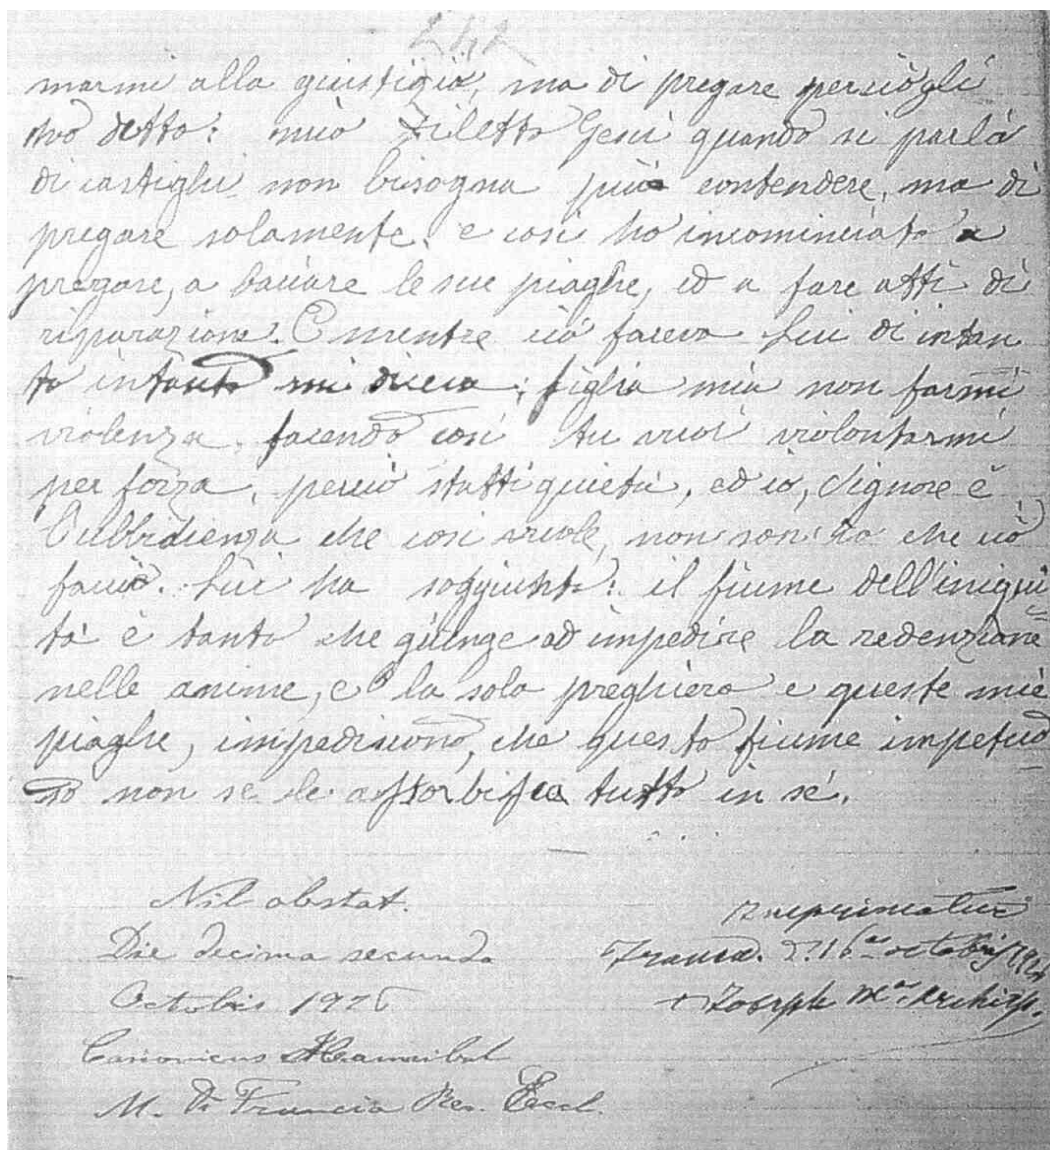 marmi alla giustizia, ma di pregare perciò gli
ho detto: mio Diletto Gesù quando si parla
di castighi non bisogna più contendere, ma di
pregare solamente. e così ho incominciato a
pregare, a baciare le sue piaghe, ed a fare atti di
riparazione. E mentre ciò faceva Lui di intan
to intanto mi diceva: figlia mia non farmi
violenza, facendo così tu vuoi violontarmi
per forza, perciò statti quieta, ed io, Signore è
l'ubbidienza che così vuole, non son io che ciò
faccio. Lui ha soggiunto: il fiume dell'iniqui
tà è tanto che giunge ad impedire la redenzione
nelle anime, e la sola preghiera e queste mie
piaghe, impediscono, che questo fiume impetuo
so non se le assorbisca tutto in sé.
Nil obstat.
Die decima secunda
Octobris 1926
Canonicus Hannibal
M. Di Francia Rev. Eccl.
Imprimatur
Trani. D. 16 octobris
+ Joseph M. Archiep.